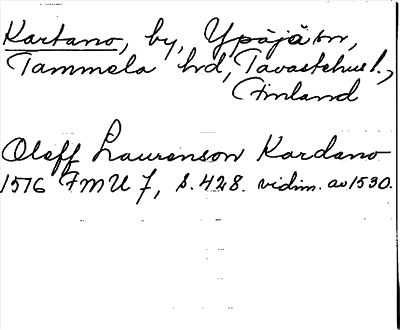 Kartano, by, Ypäjä sn,
Tammela hd, Tavastehus l.,
Finland
Oleff Laurenson Kardano
1516 FMU 7, s. 428. vidim. av 1530.